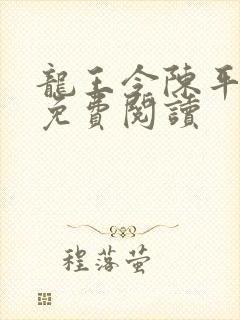 龍王令陳平
免費閱讀
程落萤